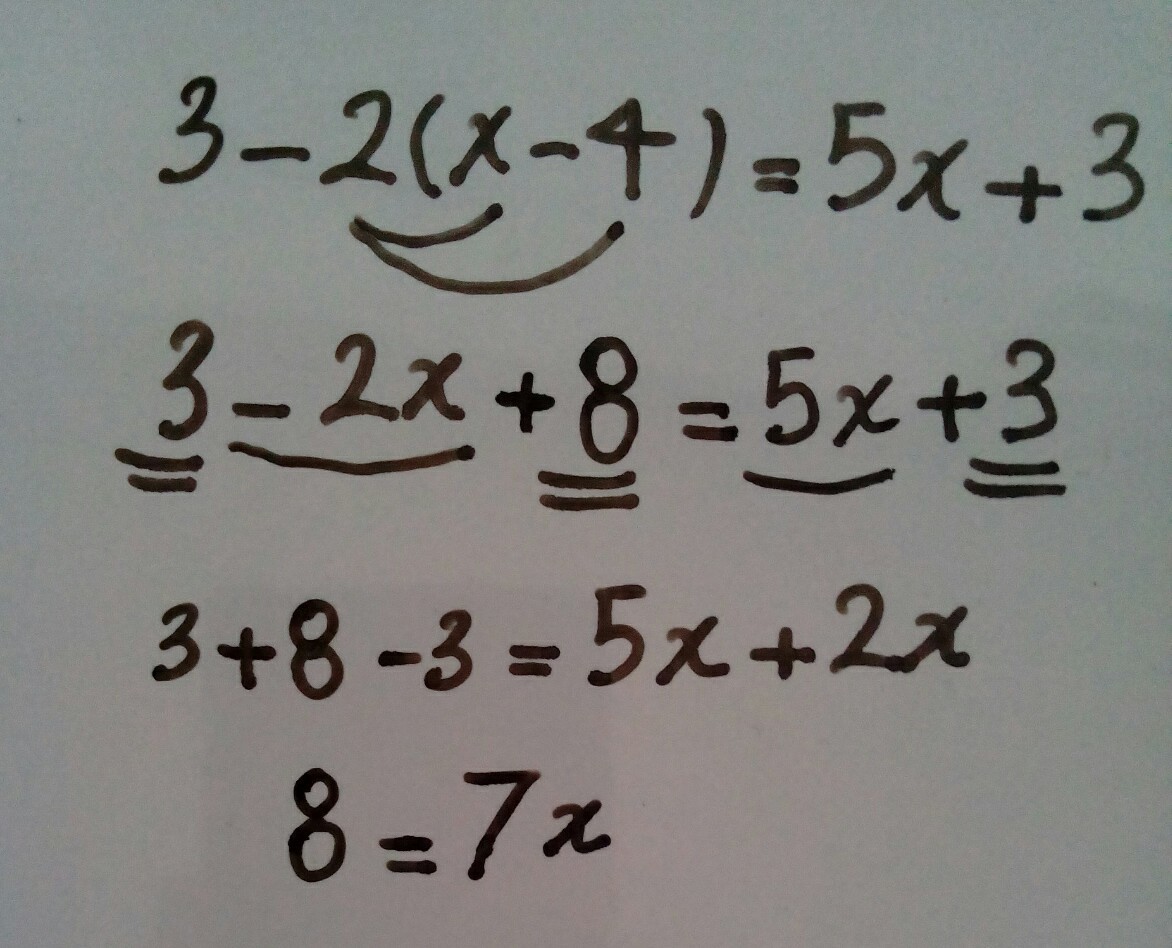 3-2(x-4)=5x+3
3-2x+8=5x+3
3+8-3=5x+2x
8=7x